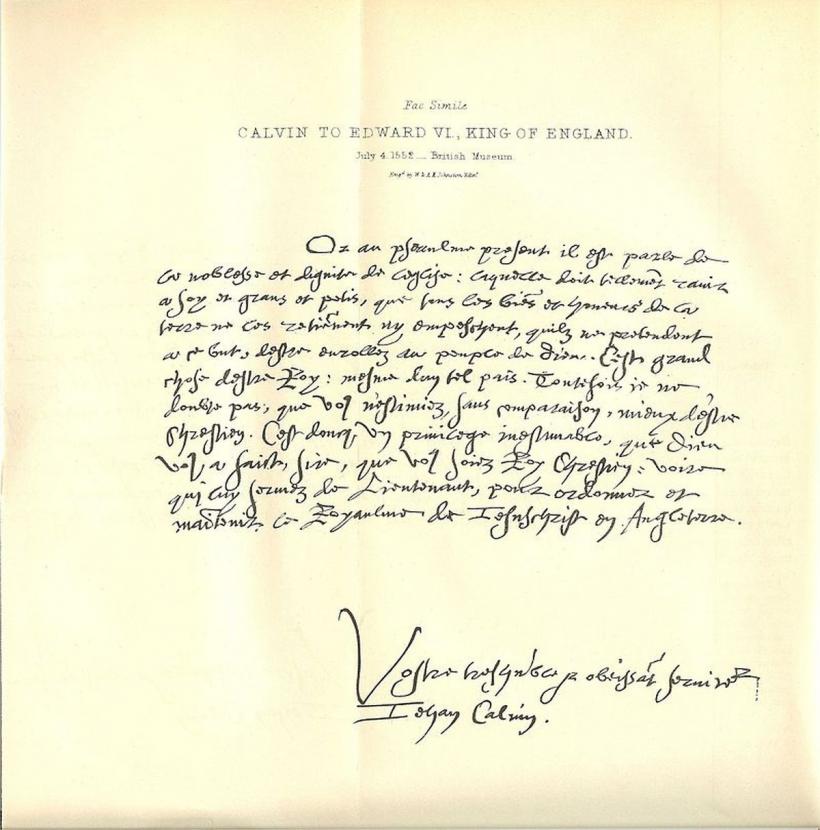 Fac Simile
CALVIN TO EDWARD VI., KING OF ENGLAND.
July 4. 1552 _ British Museum.
Engd by W & A.K. Johnston Edinr
Or au pseaulme present il est parle de
la noblesse et dignite de leglise: laquelle doit tellemēt ravir
a soy et grans et petis, que tous les biēs et honeurs de la
terre ne les retiēnent, ny empeschent, quilz ne pretendent
a ce but, destre enrollez au peuple de Dieu. Cest grand
chose destre Roy: mesme dun tel pais. Toutesfois ie ne
doubte pas, que vous nestimiez, sans comparaison, mieux destre
Chrestien. Cest doncq, un privilege inestimable, que Dieu
vous a faict, Sire, que vous soiez Roy Chrestien: voire
qui luy servez de Lieutenant, pour ordonner et
maītenir le Royaulme de Iesuschrist en Angleterre.
Vostre treshūble & obeissāt serviteur
Iehan Calvin.